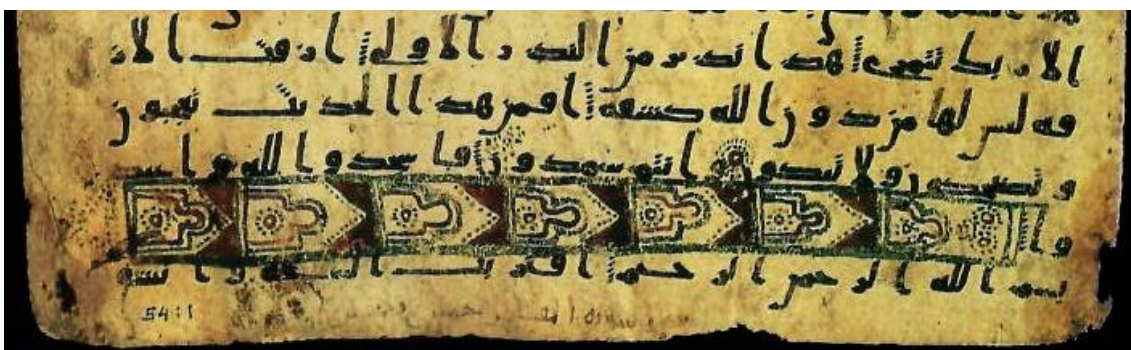 الا ربك تتمرى هذا نذير من النذر الاولى ازفت الاز
فه ليس لها من دون الله كشفه افمن هذا الحديث تعجبون
و تضحكون ولا تبكون و انتم سمدون فاسجدوا لله واعبد
وا
بسم الله الرحمن الرحيم اقتربت الساعه وانشق
54:1